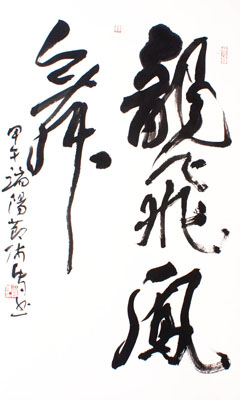 龍飛鳳
舞
甲午端陽節